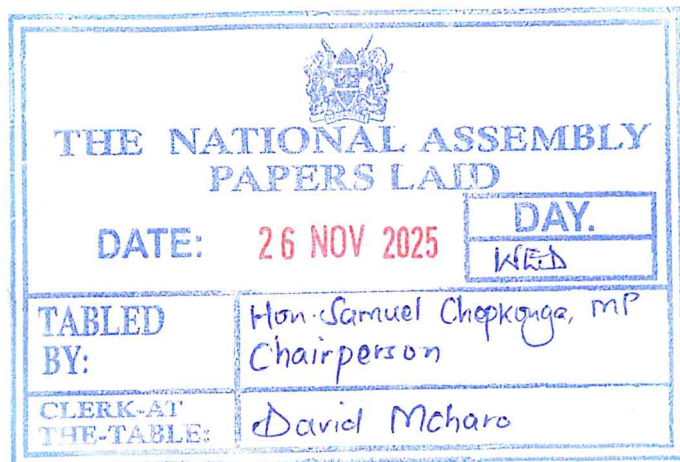 THE NATIONAL ASSEMBLY
PAPERS LAID
DATE: 26 NOV 2025
DAY.
WED
TABLED BY:
Hon. Samuel Chepkonga, MP
Chairperson
CLERK-AT THE-TABLE:
David Mcharo